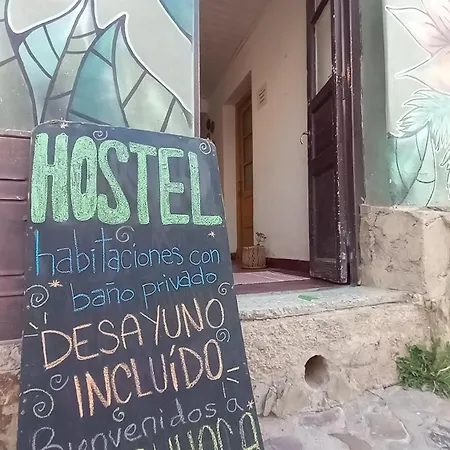 HOSTEL
habitaciones con
baño privado
DESAYUNO
INCLUÍDO
Bienvenidos a